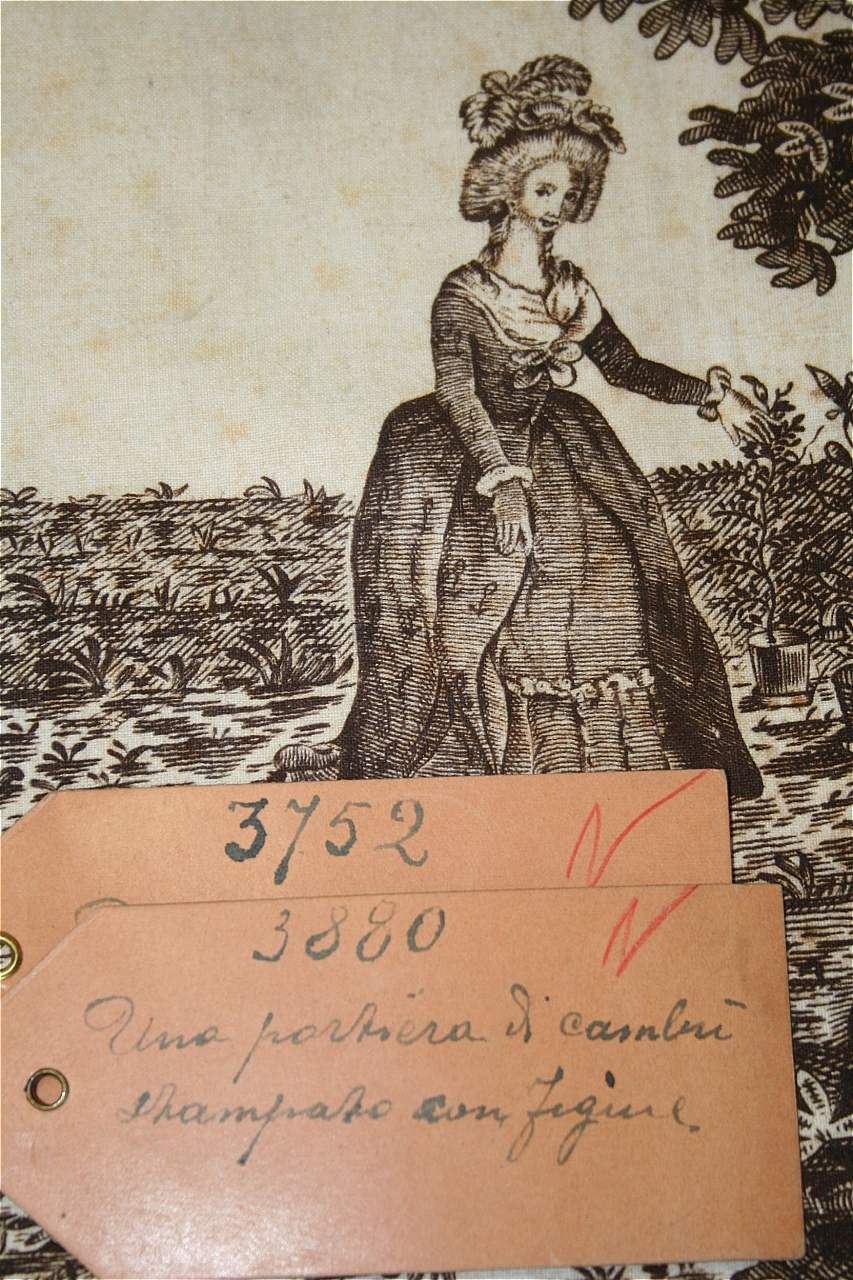 3752
3880
Una portiera di cambrì
stampato con figure